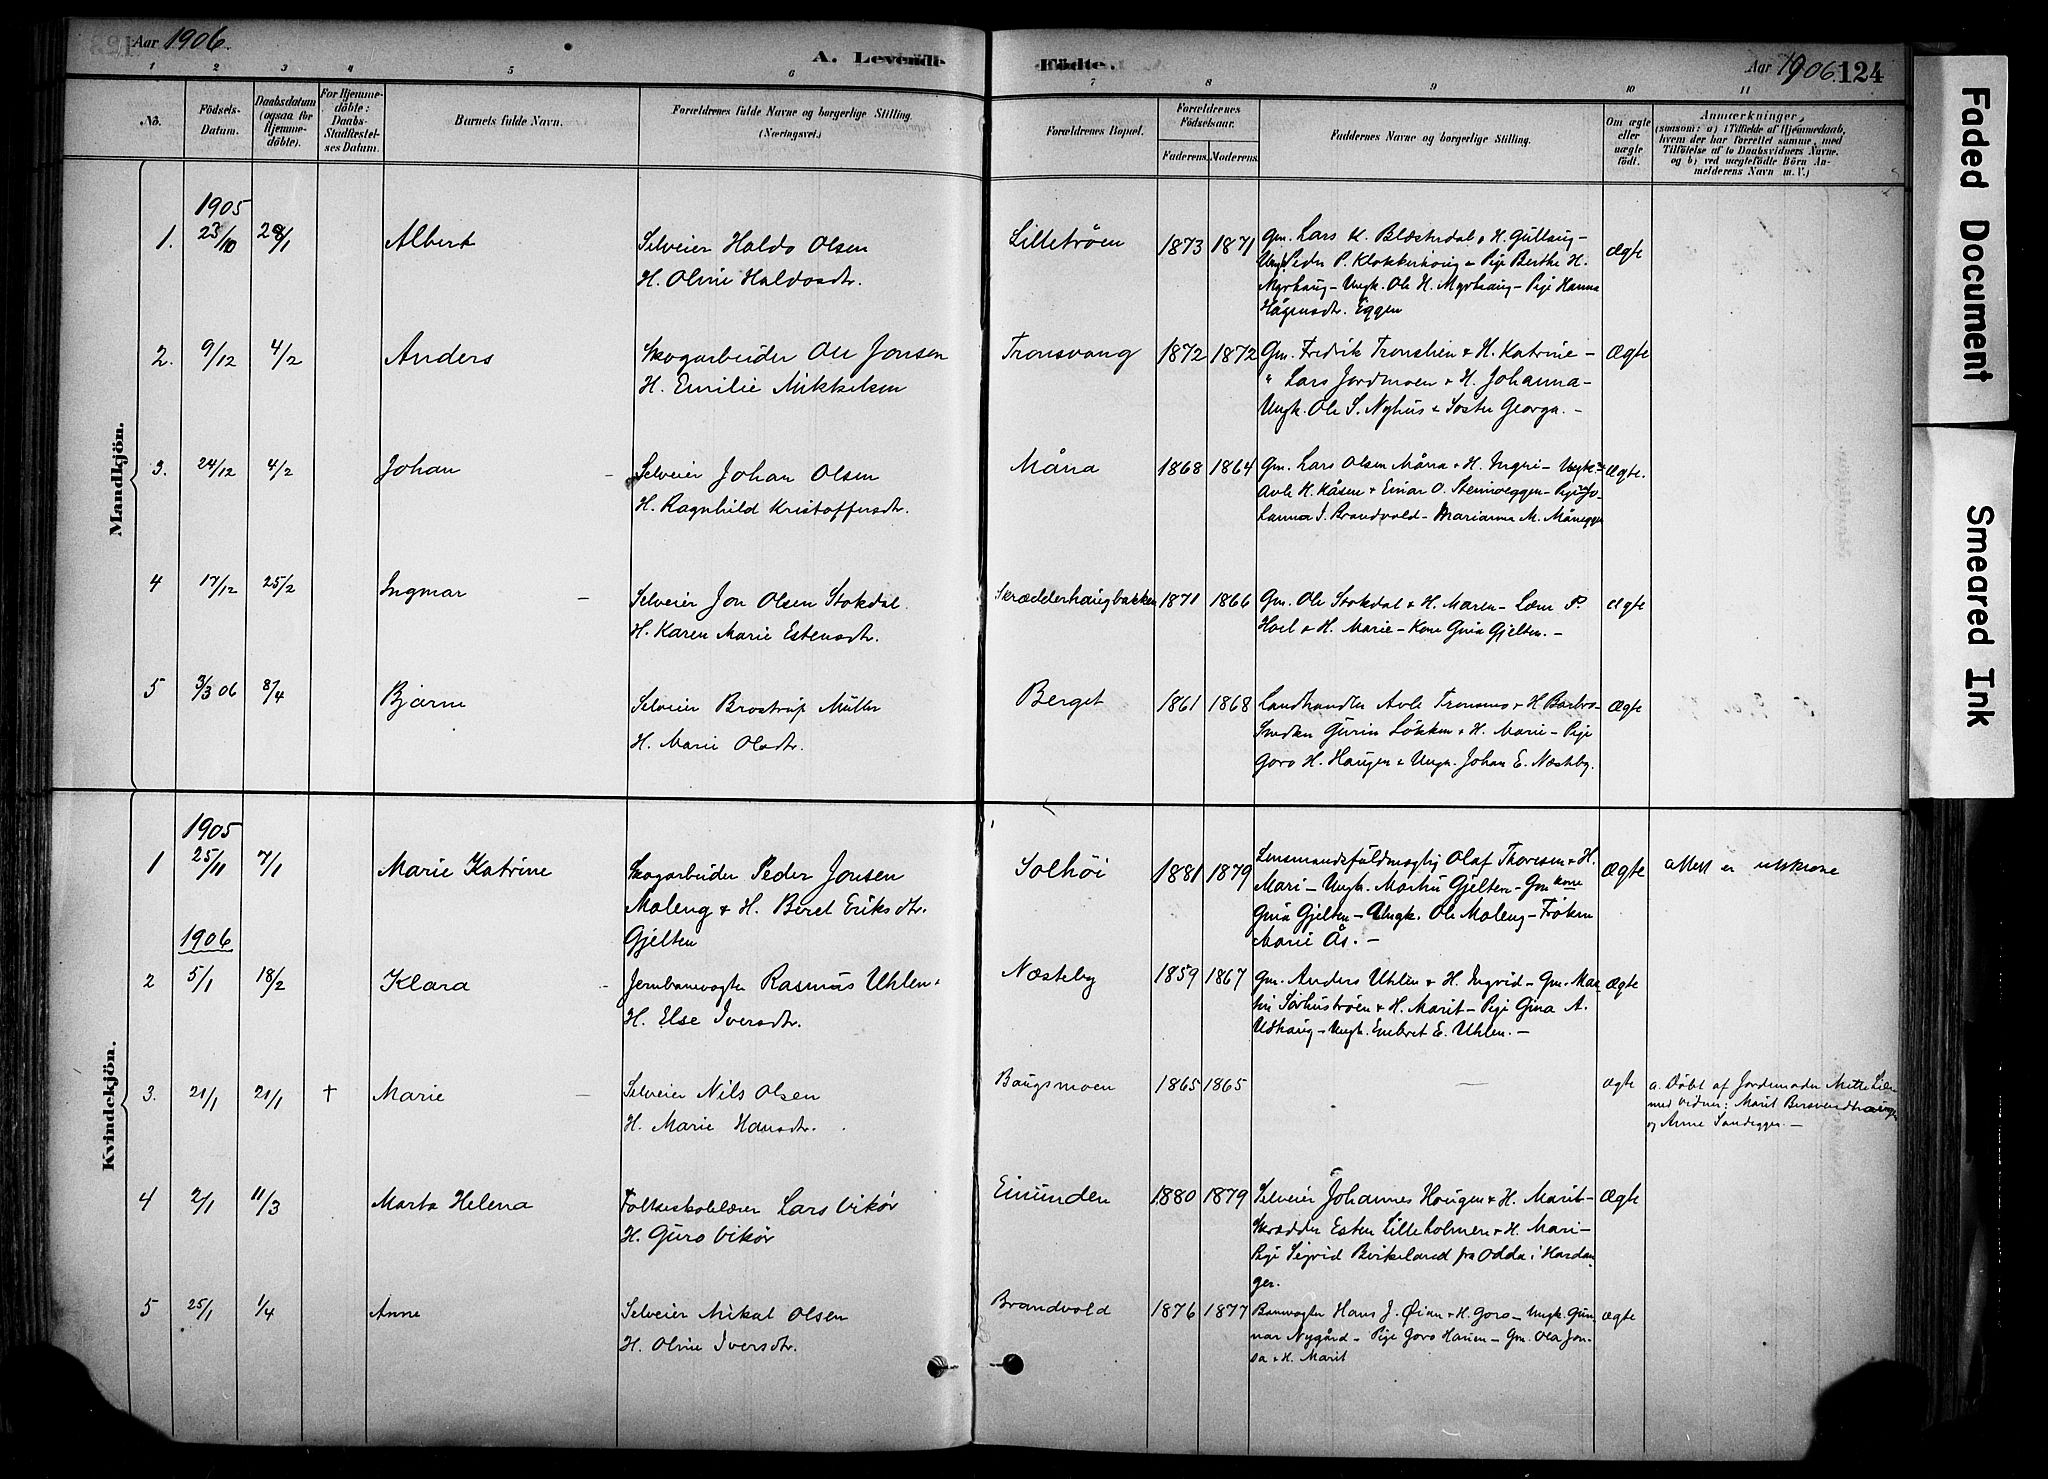 Aar 1906.
A. Levende
Födte.
Aar 1906. 124
1 2 3 4 5 6 7 8 9 10 11
No.
Födsels-
Datum.
Daabsdatum
(ogsaa for
Hjemme-
döbte).
For Hjemme-
döbte:
Daabs-
Stadfæstel-
ses Datum.
Barnets fulde Navn.
Forældrenes fulde Navne og borgerlige Stilling.
(Næringsvei.)
Forældrenes Bopæl.
Forældrenes
Födselsaar.
Faderens. Moderens.
Faddernes Navne og borgerlige Stilling.
Om ægte
eller
uægte
födt.
Anmærkninger,
(saasom: a) i Tilfælde af Hjemmedaab,
hvem der har forrettet samme, med
Tilföielse af to Daabsvidners Navne.
og b) ved uægtefödte Börn An-
melderens Navn m. V.)
Mandkjön.
1905
1. 23/10 28/1 Albert
Selveier Haldo Olsen
H. Oline Haldosdtr.
Lilletrøen 1873 1871
Gm. Lars K. Blæsterdal & H. Gullaug -
Ungk. Peder P. Klokkerhaug & Pige Berthe H.
Myrhaug - Ungk. Ole H. Myrhaug - Pige Hanna
Hågensdtr. Eggen
ægte
2. 9/12 4/2 Anders
Skogarbeider Ole Jonsen
H. Emilie Mikkelsen
Tronsvang 1872 1872
Gm. Fredrik Tronslien & H. Katrine -
" Lars Jordmoen & H. Johanna -
Ungk. Ole S. Nyhus & Søster Georga. -
Ægte
3. 24/12 4/2 Johan
Selveier Johan Olsen
H. Ragnhild Kristoffersdtr.
Måna 1868 1864
Gm. Lars Olsen Måna & H. Ingri - Ungk.
Avle H. Kåsen & Einar O. Steinveggen - Pige Jo-
hanna J. Brandvold - Marianna M. Måneggen
ægte.
4 17/12 25/2 Ingmar
Selveier Jon Olsen Stokdal.
H. Karen Marie Estensdtr.
Skrædderhaugbakken 1871 1866
Gm. Ole Stokdal & H. Maren - Lærer P.
Hoel & H. Marie - Kone Gina Gjelten. -
ægte
5 3/3 06 8/4 Bjarne
Selveier Brostrup Müller
H. Marie Olsdtr.
Berget 1861 1868
Landhandler Avle Tronsmo & H. Barbro -
Snedker Gurin Løkken & H. Marie - Pige
Goro H. Haugen & Ungk. Johan E. Næsteby.
Ægte
Kvindekjön.
1905
1 25/11 7/1 Marie Katrine
Skogarbeider Peder Jonsen
Moleng & H. Beret Eriksdtr.
Gjelten
Solhöi 1881 1879
Lensmandsfuldmægtig Olaf Thoresen & H.
Mari - Ungk. Martin Gjelten - Gm. Kone
Gina Gjelten - Ungk. Ole Moleng - Frøken
Marie Ås. -
Ægte
Attest er utskreve
1906
2 5/1 18/2 Klara
Jernbanevogter Rasmus Uhlen.
H. Else Iversdtr.
Næsteby 1859 1867
Gm. Anders Uhlen & H. Ingrid - Gm. Mar-
tin Sørhustrøen & H. Marit - Pige Gina A.
Udhaug - Ungk. Embret E. Uhlen. -
Ægte
3. 21/1 21/1 † Marie
Selveier Nils Olsen
H. Marie Hansdtr.
Baugsmoen 1865 1865
-
ægte
a. Døbt af Jordemoder Mette Lien
med vidner: Marit Bersvendhaugen
og Anne Sandeggen. -
4 2/1 11/3 Marta Helena
Folkeskolelærer Lars Vikør
H. Guro Vikør
Einunden 1880 1879
Selveier Johannes Haugen & H. Marit -
Skrædder Esten Lilleholmen & H. Mari -
Pige Sigrid Birkeland fra Odda i Hardan-
ger.
Ægte
5 25/1 1/4 Anne
Selveier Mikal Olsen
H. Oline Iversdtr.
Brandvold 1876 1877
Banevogter Hans J. Øian & H. Goro - Ungk. Gun-
nar Nygård - Pige Goro Hauen - Gm. Ola Jon-
sa & H. Marit
ægte
Faded Document
Smeared Ink